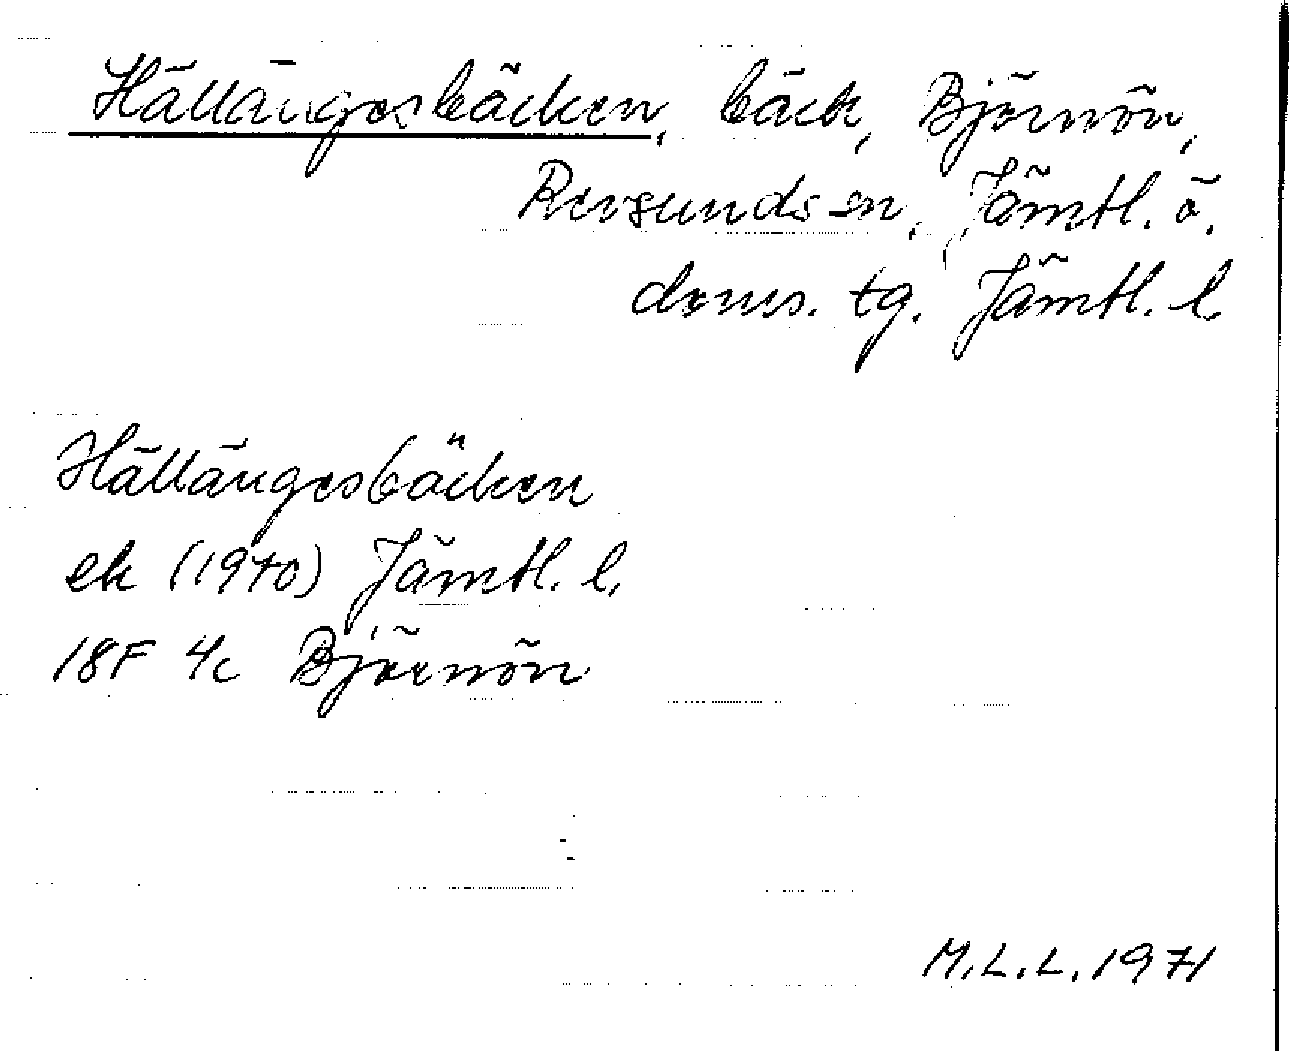 Hällängesbäcken, bäck, Björnön,
Revsunds sn, Jämtl. ö.
doms. tg. Jämtl. l.
Hällängesbäcken
ek (1970) Jämtl. l.
18F 4c Björnön
M.L.L. 1971